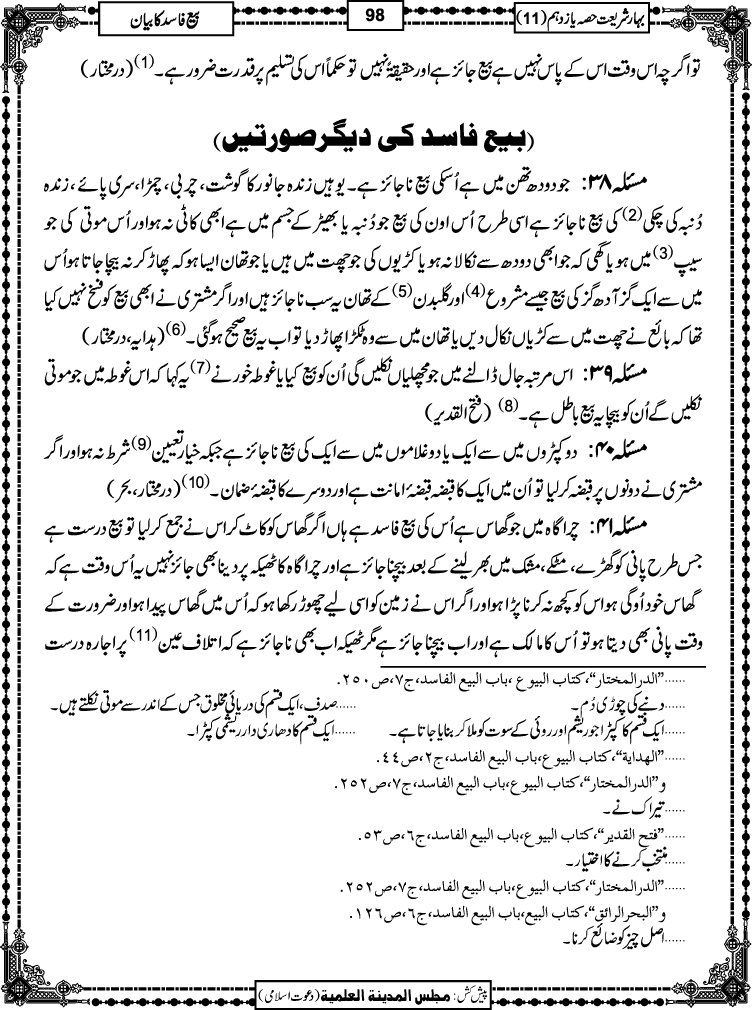 بہارشریعت حصہ یازدہم (11)
98
بیع فاسد کا بیان
تو اگرچہ اس وقت اس کے پاس نہیں ہے بیع جائز ہے اور حقیقۃً نہیں تو حکماً اس کی تسلیم پر قدرت ضرور ہے۔(1) (درمختار)
(بیع فاسد کی دیگر صورتیں)
مسئلہ ۳۸: جو دودھ تھن میں ہے اُسکی بیع ناجائز ہے۔ یوہیں زندہ جانور کا گوشت، چربی، چمڑا، سری پائے، زندہ
دُنبہ کی چکی(2) کی بیع ناجائز ہے اسی طرح اُس اون کی بیع جو دُنبہ یا بھیڑ کے جسم میں ہے ابھی کاٹی نہ ہو اور اُس موتی کی جو
سیپ(3) میں ہو یا گھی کہ جو ابھی دودھ سے نکالا نہ ہو یا کڑیوں کی جو چھت میں ہیں یا جو تھان ایسا ہو کہ پھاڑ کر نہ بیچا جاتا ہو اُس
میں سے ایک گز آدھ گز کی بیع جیسے مشروع(4) اور گلبدن(5) کے تھان یہ سب ناجائز ہیں اور اگر مشتری نے ابھی بیع کو فسخ نہیں کیا
تھا کہ بائع نے چھت میں سے کڑیاں نکال دیں یا تھان میں سے وہ ٹکڑا پھاڑ دیا تو اب یہ بیع صحیح ہوگئی۔(6) (ہدایہ، درمختار)
مسئلہ ۳۹: اس مرتبہ جال ڈالنے میں جو مچھلیاں نکلیں گی اُن کو بیع کیا یا غوطہ خور نے(7) یہ کہا کہ اس غوطہ میں جو موتی
نکلیں گے اُن کو بیچا یہ بیع باطل ہے۔(8) (فتح القدیر)
مسئلہ ۴۰: دو کپڑوں میں سے ایک یا دو غلاموں میں سے ایک کی بیع ناجائز ہے جبکہ خیار تعیین(9) شرط نہ ہو اور اگر
مشتری نے دونوں پر قبضہ کر لیا تو اُن میں ایک کا قبضہ قبضۂ امانت ہے اور دوسرے کا قبضۂ ضمان۔(10) (درمختار، بحر)
مسئلہ ۴۱: چراگاہ میں جو گھاس ہے اُس کی بیع فاسد ہے ہاں اگر گھاس کو کاٹ کر اس نے جمع کر لیا تو بیع درست ہے
جس طرح پانی کو گھڑے، مٹکے، مشک میں بھر لینے کے بعد بیچنا جائز ہے اور چراگاہ کا ٹھیکہ پر دینا بھی جائز نہیں یہ اُس وقت ہے کہ
گھاس خود اُوگی ہو اس کو کچھ نہ کرنا پڑا ہو اور اگر اس نے زمین کو اسی لیے چھوڑ رکھا ہو کہ اُس میں گھاس پیدا ہو اور ضرورت کے
وقت پانی بھی دیتا ہو تو اُس کا مالک ہے اور اب بیچنا جائز ہے مگر ٹھیکہ اب بھی ناجائز ہے کہ اتلاف عین(11) پر اجارہ درست
......"الدرالمختار"، کتاب البیوع، باب البیع الفاسد، ج۷، ص۲۵۰.
......دنبے کی چوڑی دُم۔ ......صدف، ایک قسم کی دریائی مخلوق جس کے اندر سے موتی نکلتے ہیں۔
......ایک قسم کا کپڑا جو ریشم اور روئی کے سوت کو ملا کر بنایا جاتا ہے۔ ......ایک قسم کا دھاری دار ریشمی کپڑا۔
......"الھدایة"، کتاب البیوع، باب البیع الفاسد، ج۲، ص۴۴.
و"الدرالمختار"، کتاب البیوع، باب البیع الفاسد، ج۷، ص۲۵۲.
......تیراک نے۔
......"فتح القدیر"، کتاب البیوع، باب البیع الفاسد، ج۶، ص۵۳.
......منتخب کرنے کا اختیار۔
......"الدرالمختار"، کتاب البیوع، باب البیع الفاسد، ج۷، ص۲۵۲.
و"البحرالرائق"، کتاب البیع، باب البیع الفاسد، ج۶، ص۱۲۶.
......اصل چیز کو ضائع کرنا۔
پیش کش: مجلس المدینة العلمیة (دعوت اسلامی)